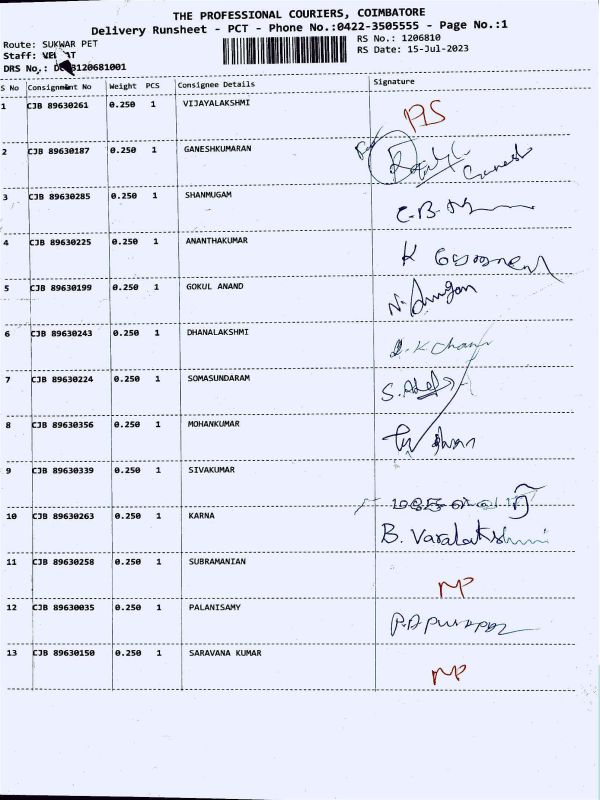 THE PROFESSIONAL COURIERS, COIMBATORE
Delivery Runsheet - PCT - Phone No.:0422-3505555 - Page No.:1
Route: SUKWAR PET
RS No.: 1206810
Staff:
RS Date: 15-Jul-2023
DRS No.:
S No Consignment No Weight PCS Consignee Details Signature
1 CJB 89630261 0.250 1 VIJAYALAKSHMI
2 CJB 89630187 0.250 1 GANESHKUMARAN Ganesh
3 CJB 89630285 0.250 1 SHANMUGAM
4 CJB 89630225 0.250 1 ANANTHAKUMAR K
5 CJB 89630199 0.250 1 GOKUL ANAND
6 CJB 89630243 0.250 1 DHANALAKSHMI
7 CJB 89630224 0.250 1 SOMASUNDARAM
8 CJB 89630356 0.250 1 MOHANKUMAR
9 CJB 89630339 0.250 1 SIVAKUMAR
10 CJB 89630263 0.250 1 KARNA B. Varalakshmi
11 CJB 89630258 0.250 1 SUBRAMANIAN NP
12 CJB 89630035 0.250 1 PALANISAMY
13 CJB 89630150 0.250 1 SARAVANA KUMAR NP